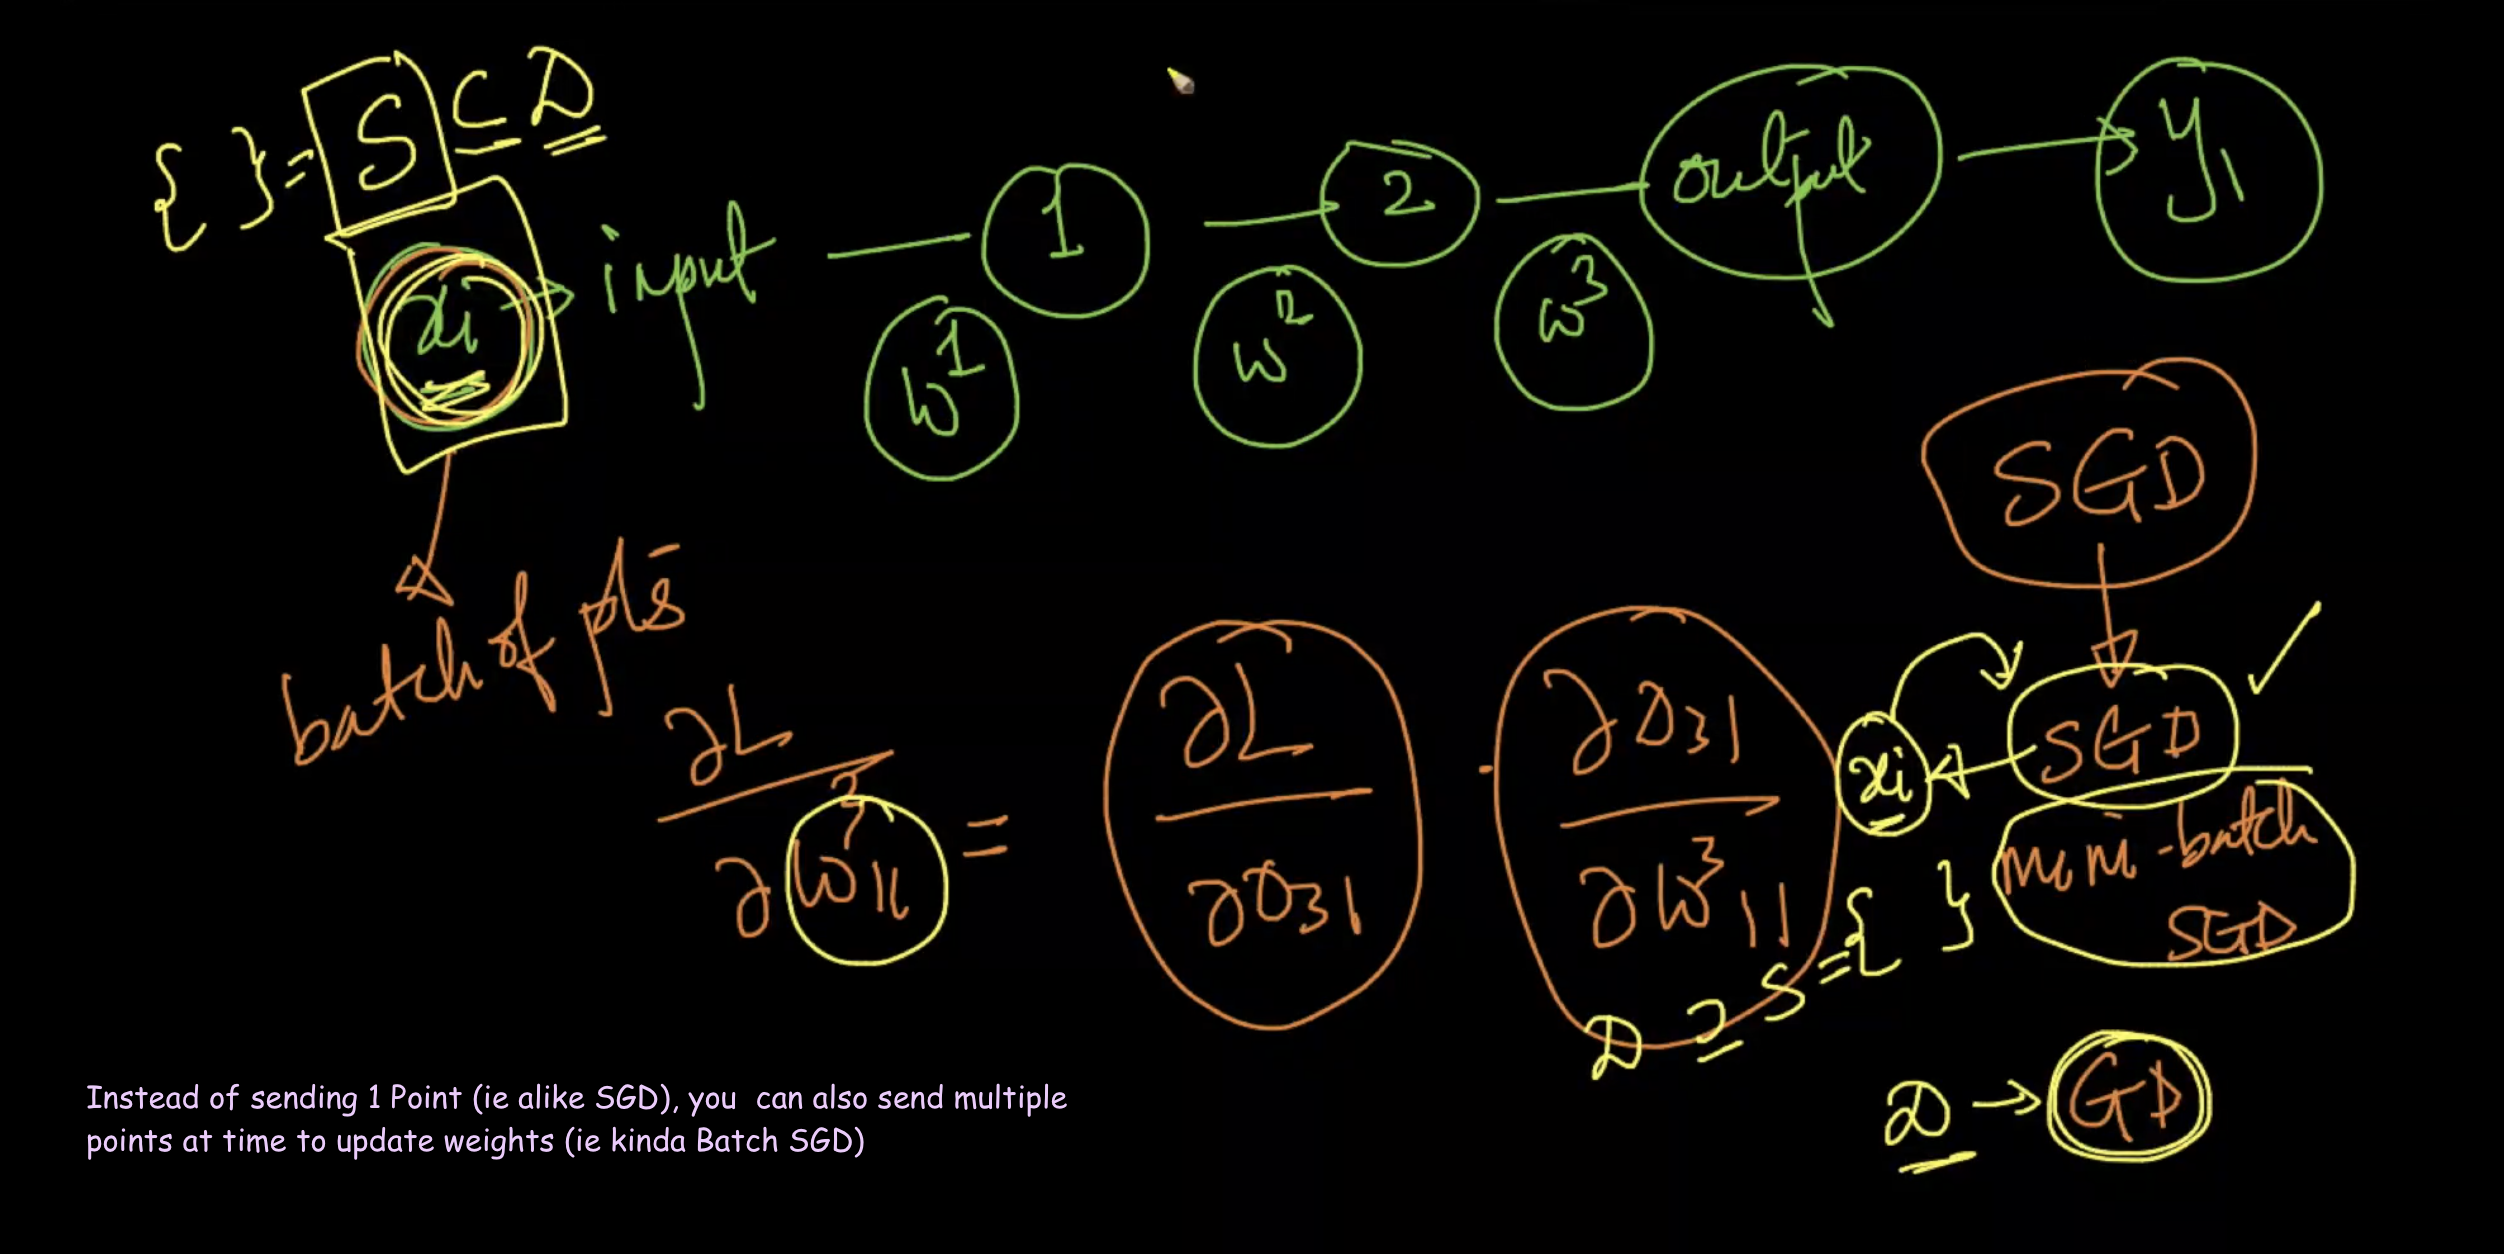 { } = S ⊂ D
xi → input
1
2
output
y1
w1
w2
w3
SGD
batch of pts
SGD
xi
mini-batch
SGD
∂L
∂w311
=
∂L
∂O31
·
∂O31
∂w311
D ⊇ S = { }
D → GD
Instead of sending 1 Point (ie alike SGD), you can also send multiple
points at time to update weights (ie kinda Batch SGD)